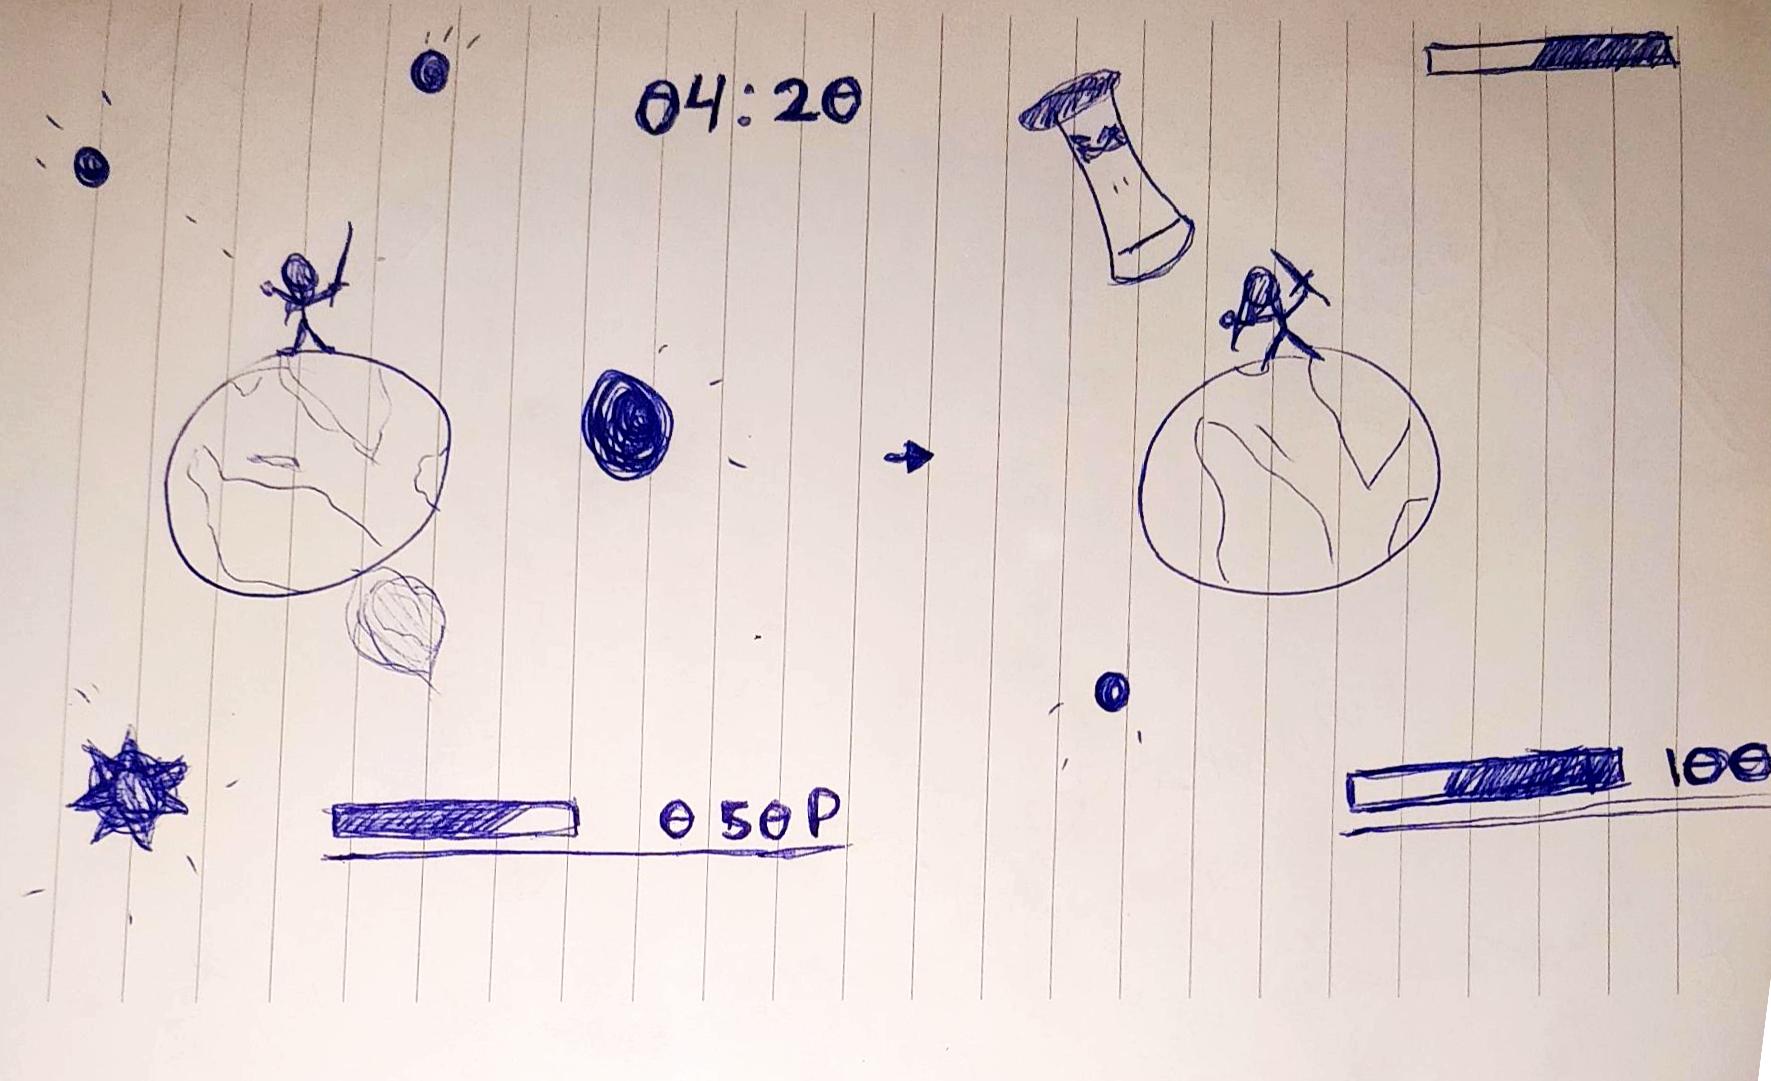 04:20
0 50P
100